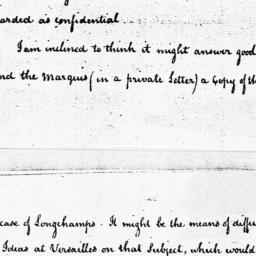 arded as confidential.
I am inclined to think it might answer good
nd the Marquis (in a private Letter) a Copy of th
case of Longchamps. It might be the means of diffu
Ideas at Versailles on that Subject, which would